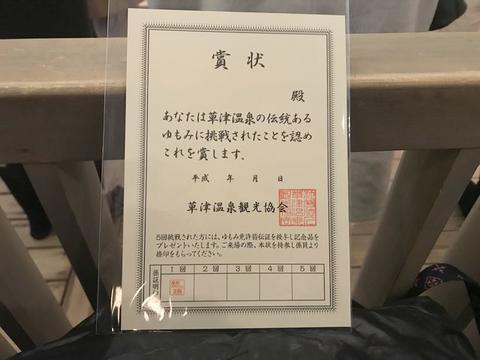 賞状
殿
あなたは草津温泉の伝統ある
ゆもみに挑戦されたことを認め
これを賞します。
平成 年 月 日
草津温泉観光協会
5回挑戦された方には、ゆもみ免許皆伝証を授与し記念品を
プレゼントいたします。ご来場の際、本状を持参し係員より
捺印をもらってください。
係証明
1回 2回 3回 4回 5回